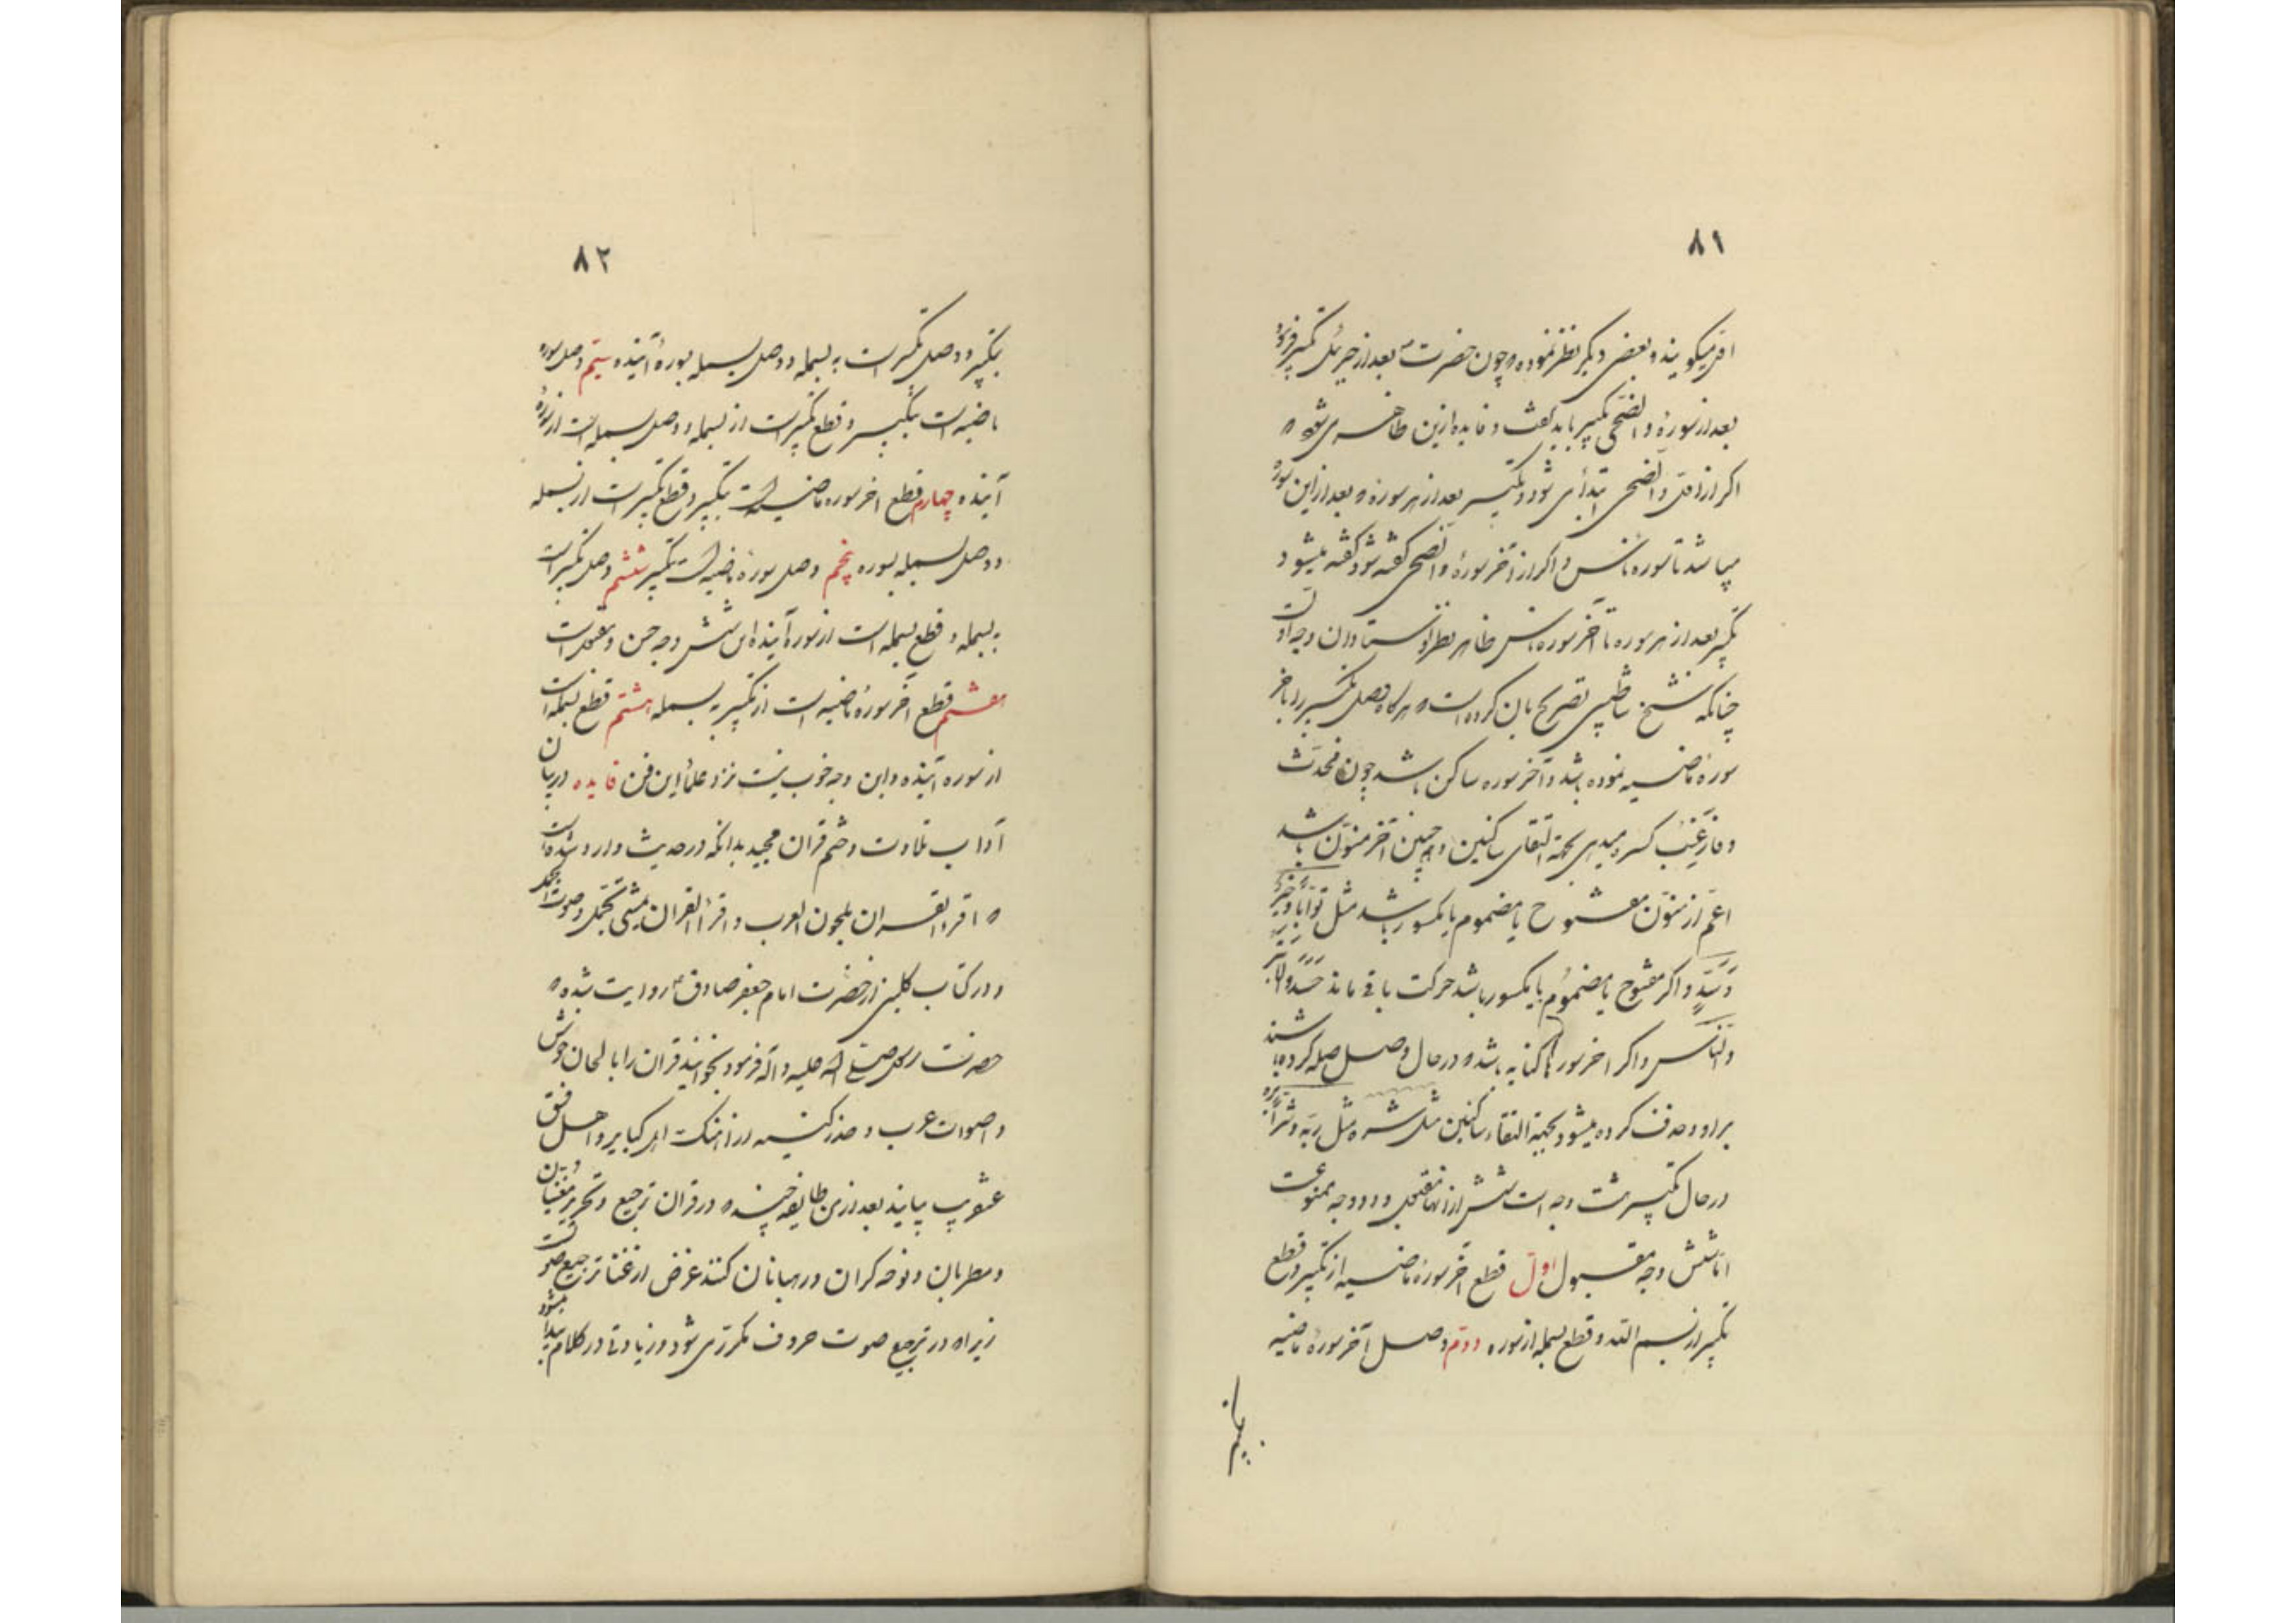 ۸۱
اقرء میگویند و بعضی دیگر نظر نموده‌اند چون حضرت بعد از جبرئیل تکبیر فرمود
بعد از سورهٔ والضحی تکبیر باید گفت و فایده ازین ظاهر می‌شود
اگر از اول والضحی ابتدا می شود تکبیر بعد از هر سوره بعد از این سوره
میباشد تا سوره ناس و اگر از آخر سورهٔ والضحی گفته شود گفته میشود
تکبیر بعد از هر سوره تا آخر سوره ناس ظاهر
چنانکه شیخ شاطبی تصریح بان کرده است و هرگاه وصل تکبیر را باخر
سورهٔ ماضیه نموده باشد و آخر سوره ساکن باشد چون فحدث
و فارغب کسره میدهی بجهة التقای ساکنین و همچنین آخر منون باشد
اعم از منون مفتوح یا مضموم یا مکسور باشد مثل توابا و خبیر
و اگر مفتوح یا مضموم یا مکسور باشد حرکت باقی ماند حسد و الابتر
والناس و اگر اخر سوره ها کنایه باشد در حال وصل صله کرده باشند
براو حذف کرده میشود بجهة التقاء ساکنین مثل ربه و شرا یره
در حال تکبیر هشت وجه است شش از انها مقبول و دو وجه ممنوعست
اما شش وجه مقبول اول قطع آخر سورهٔ ماضیه از تکبیر و قطع
تکبیر از بسم الله و قطع بسمله از سوره دویم وصل آخر سورهٔ ماضیه
بتکبیر
۸۲
بتکبیر و وصل تکبیر است به بسمله و وصل بسمله بسورهٔ آینده سیم وصل سوره
ماضیه است بتکبیر و قطع تکبیر است از بسمله و وصل بسمله است از سورهٔ
آینده چهارم قطع اخر سوره ماضیه است بتکبیر و قطع تکبیر است از بسمله
و وصل بسمله بسوره پنجم وصل سورهٔ ماضیه است بتکبیر ششم وصل تکبیر است
به بسمله و قطع بسمله است از سورهٔ آینده این شش وجه حسن و مقبول است
هفتم قطع آخر سورهٔ ماضیه است از تکبیر به بسمله هشتم قطع بسمله است
از سوره آینده و این وجه خوب نیست نزد علماء این فن فایده در بیان
آداب تلاوت و ختم قرآن مجید بدانکه در حدیث وارد شده است
که اقرؤا القران بلحون العرب و اقرء القران
و در کتاب کلینی از حضرت امام جعفر صادق روایت شده که
حضرت رسول صلی الله علیه و آله فرمود بخوانید قران را با لحان خوش
و اصوات عرب و حذر کنید از آهنگ اهل کبایر و اهل فسق
عنقریب بیایند بعد از من طایفه چند که در قران ترجیع و تحریر مغنیان
و مطربان و نوحه گران و رهبانان کنند غرض از غنا ترجیع صوتست
زیراکه در ترجیع صوت حروف مکرر می شود و زیادتی در کلام پیدا میشود